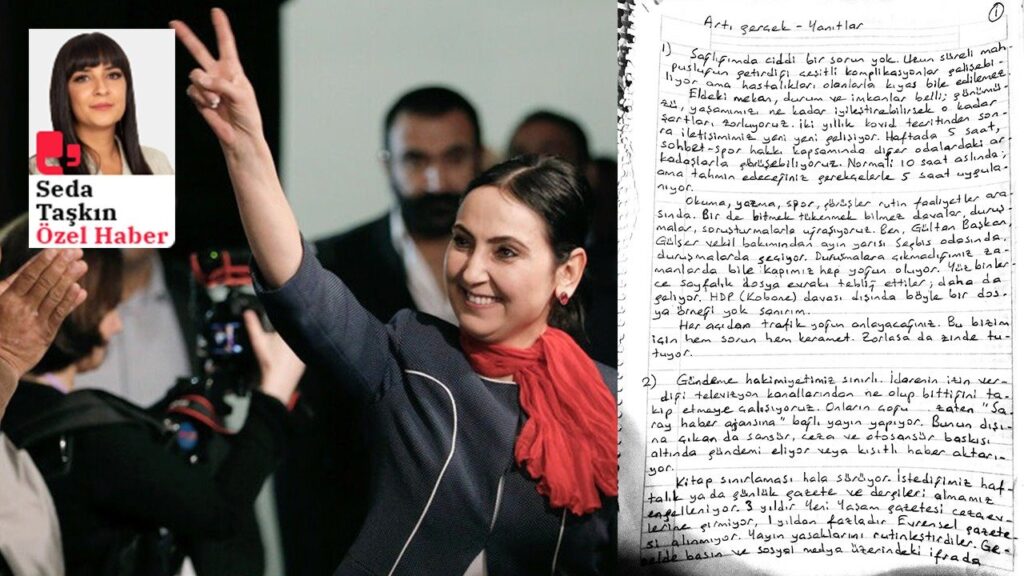 Seda
Taşkın
Özel Haber
1
Artı gerçek - Yanıtlar
1) Sağlığımda ciddi bir sorun yok. Uzun süreli mah-
pusluğun getirdiği çeşitli komplikasyonlar gelişebi-
liyor ama hastalıkları olanlarla kıyas bile edilemez.
Eldeki mekan, durum ve imkanlar belli; günümü-
zü, yaşamımızı ne kadar iyileştirebilirsek o kadar
şartları zorluyoruz. iki yıllık kovid tecritinden son-
ra iletişimimiz yeni yeni gelişiyor. Haftada 5 saat,
sohbet-spor hakkı kapsamında diğer odalardaki ar-
kadaşlarla görüşebiliyoruz. Normali 10 saat aslında;
ama tahmin edeceğiniz gerekçelerle 5 saat uygula-
nıyor.
Okuma, yazma, spor, görüşler rutin faaliyetler ara-
sında. Bir de bitmek tükenmek bilmez davalar, duruş-
malar, soruşturmalarla uğraşıyoruz. Ben, Gültan Başkan,
Gülser vekil bakımından ayın yarısı Segbis odasında,
duruşmalarda geçiyor. Duruşmalara çıkmadığımız za-
manlarda bile kapımız hep yoğun oluyor. Yüz binler-
ce sayfalık dosya evrakı tebliğ ettiler; daha da
geliyor. HDP (Kobane) davası dışında böyle bir dos-
ya örneği yok sanırım.
Her açıdan trafik yoğun anlayacağınız. Bu bizim
için hem sorun hem keramet. Zorlasa da zinde tu-
tuyor.
2) Gündeme hakimiyetimiz sınırlı. İdarenin izin ver-
diği televizyon kanallarından ne olup bittiğini ta-
kip etmeye çalışıyoruz. Onların çoğu zaten "Sa-
ray haber ajansına" bağlı yayın yapıyor. Bunun dışı-
na çıkan da sansür, ceza ve otosansür baskısı
altında gündemi eliyor veya kısıtlı haber aktarı-
yor.
Kitap sınırlaması hala sürüyor. İstediğimiz haf-
talık ya da günlük gazete ve dergileri almamız
engelleniyor. 3 yıldır Yeni Yaşam gazetesi cezaev-
lerine girmiyor, 1 yıldan fazladır Evrensel gazete-
si alınmıyor. Yayın yasaklarını rutinleştirdiler. Ge-
nelde basın ve sosyal medya üzerindeki ifrada